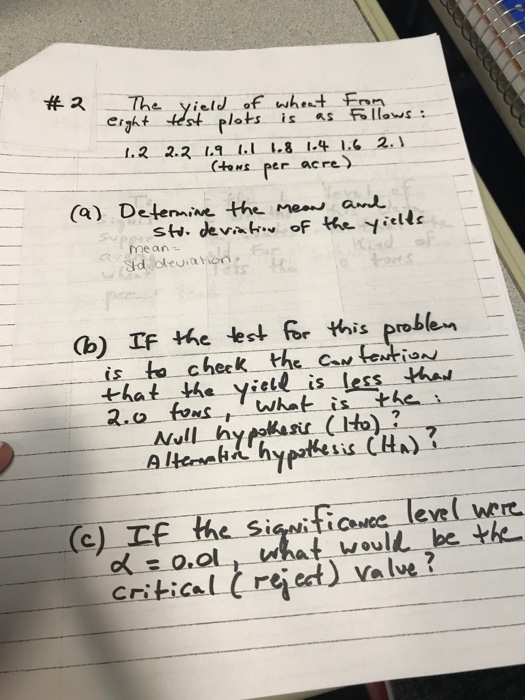 #2 The yield of wheat From
eight test plots is as Follows:
1.2 2.2 1.9 1.1 1.8 1.4 1.6 2.1
(tons per acre)
(a) Determine the mean and
std. deviation of the yields
mean=
std deviation=
(b) If the test for this problem
is to check the contention
that the yield is less than
2.0 tons, what is the:
Null hypothesis (Ho)?
Alternative hypothesis (HA)?
(c) If the significance level were
α = 0.01, what would be the
critical (reject) value?